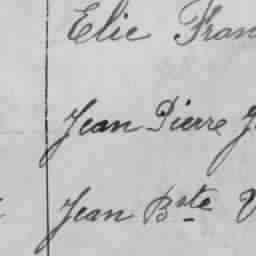 Elie Fran
Jean Pierre J
Jean Bste V